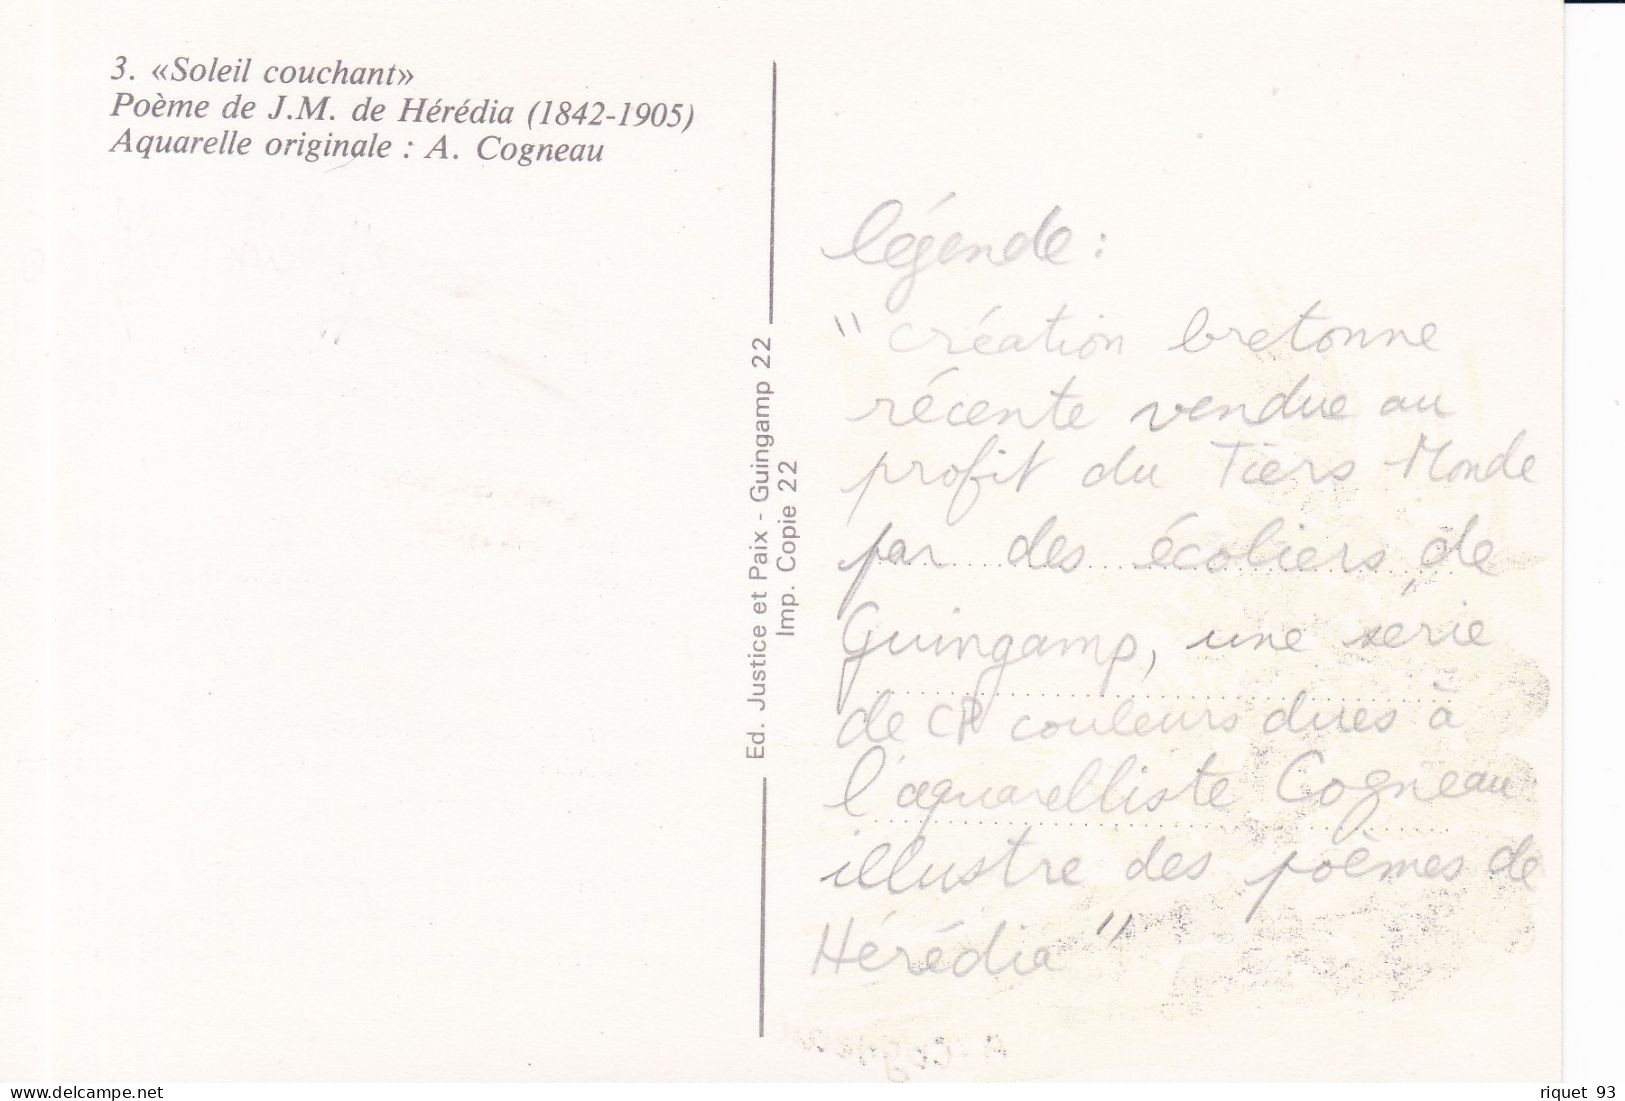 3. «Soleil couchant»
Poème de J.M. de Hérédia (1842-1905)
Aquarelle originale : A. Cogneau
Ed. Justice et Paix - Guingamp 22
Imp. Copie 22
légende :
"création bretonne
récente vendue au
profit du Tiers Monde
par des écoliers de
Guingamp, une série
de CP couleurs dues à
l'aquarelliste Cogneau
illustre des poèmes de
Hérédia"
A. Cogneau
delcampe.net
riquet 93